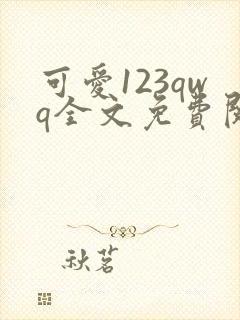 可愛123qw
q全文免費閱
秋茗